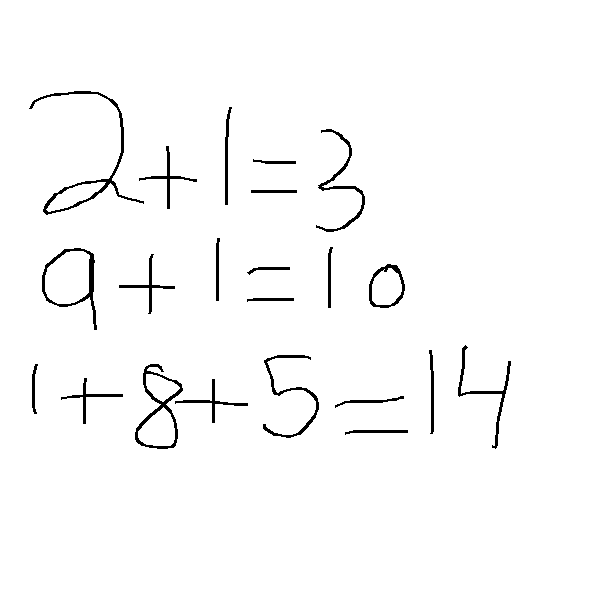 2+1=3
9+1=10
1+8+5=14